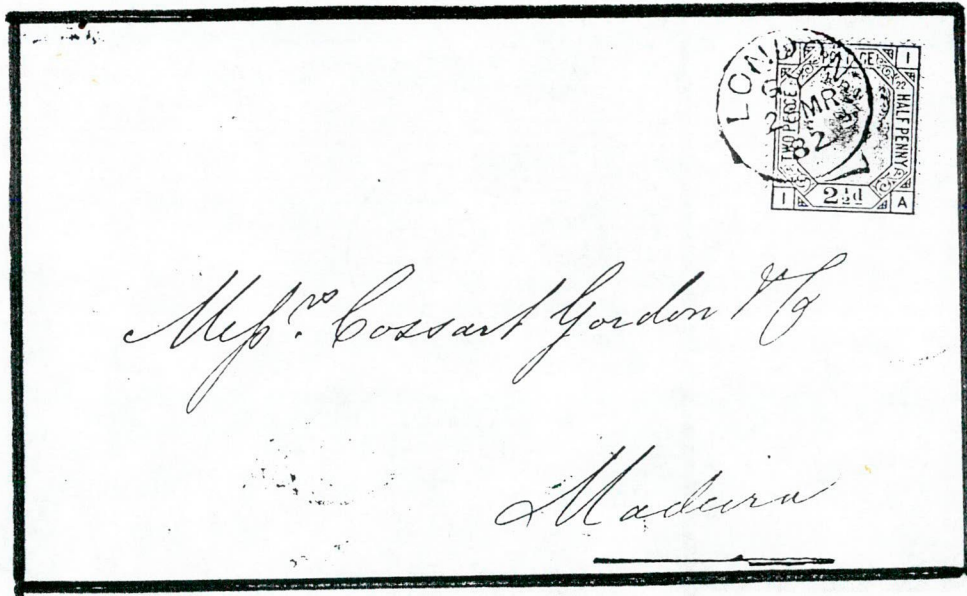 LONDON
2 MR
82
POSTAGE
TWO PENCE
HALFPENNY
I
I
2½d
A
Mess.rs Cossart Gordon & Co
Madeira